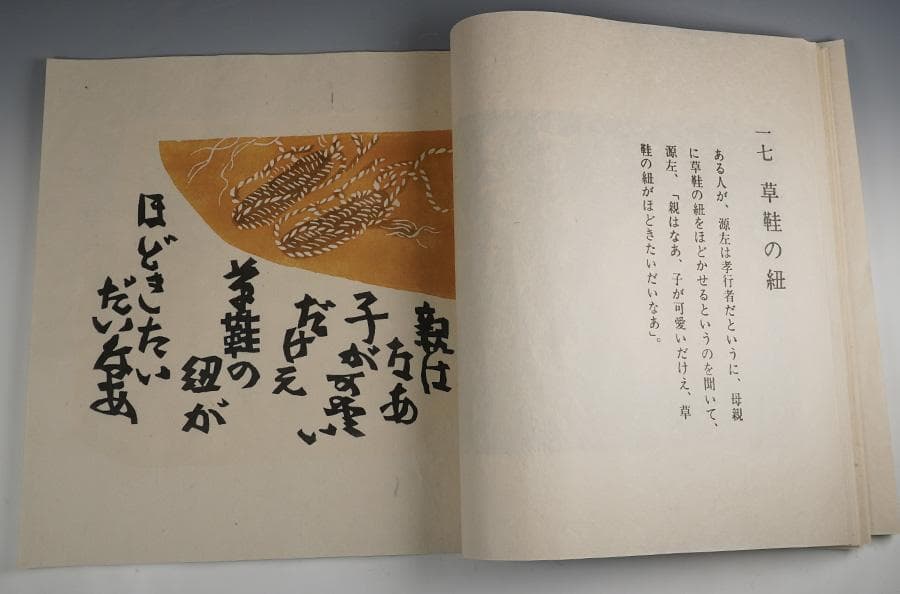 一七 草鞋の紐
ある人が、源左は孝行者だというに、母親
に草鞋の紐をほどかせるというのを聞いて、
源左、「親はなあ、子が可愛いだけえ、草
鞋の紐がほどきたいだいなあ」。
親は
なあ
子が可愛い
だけえ
草鞋の
紐が
ほどきたい
だいなあ